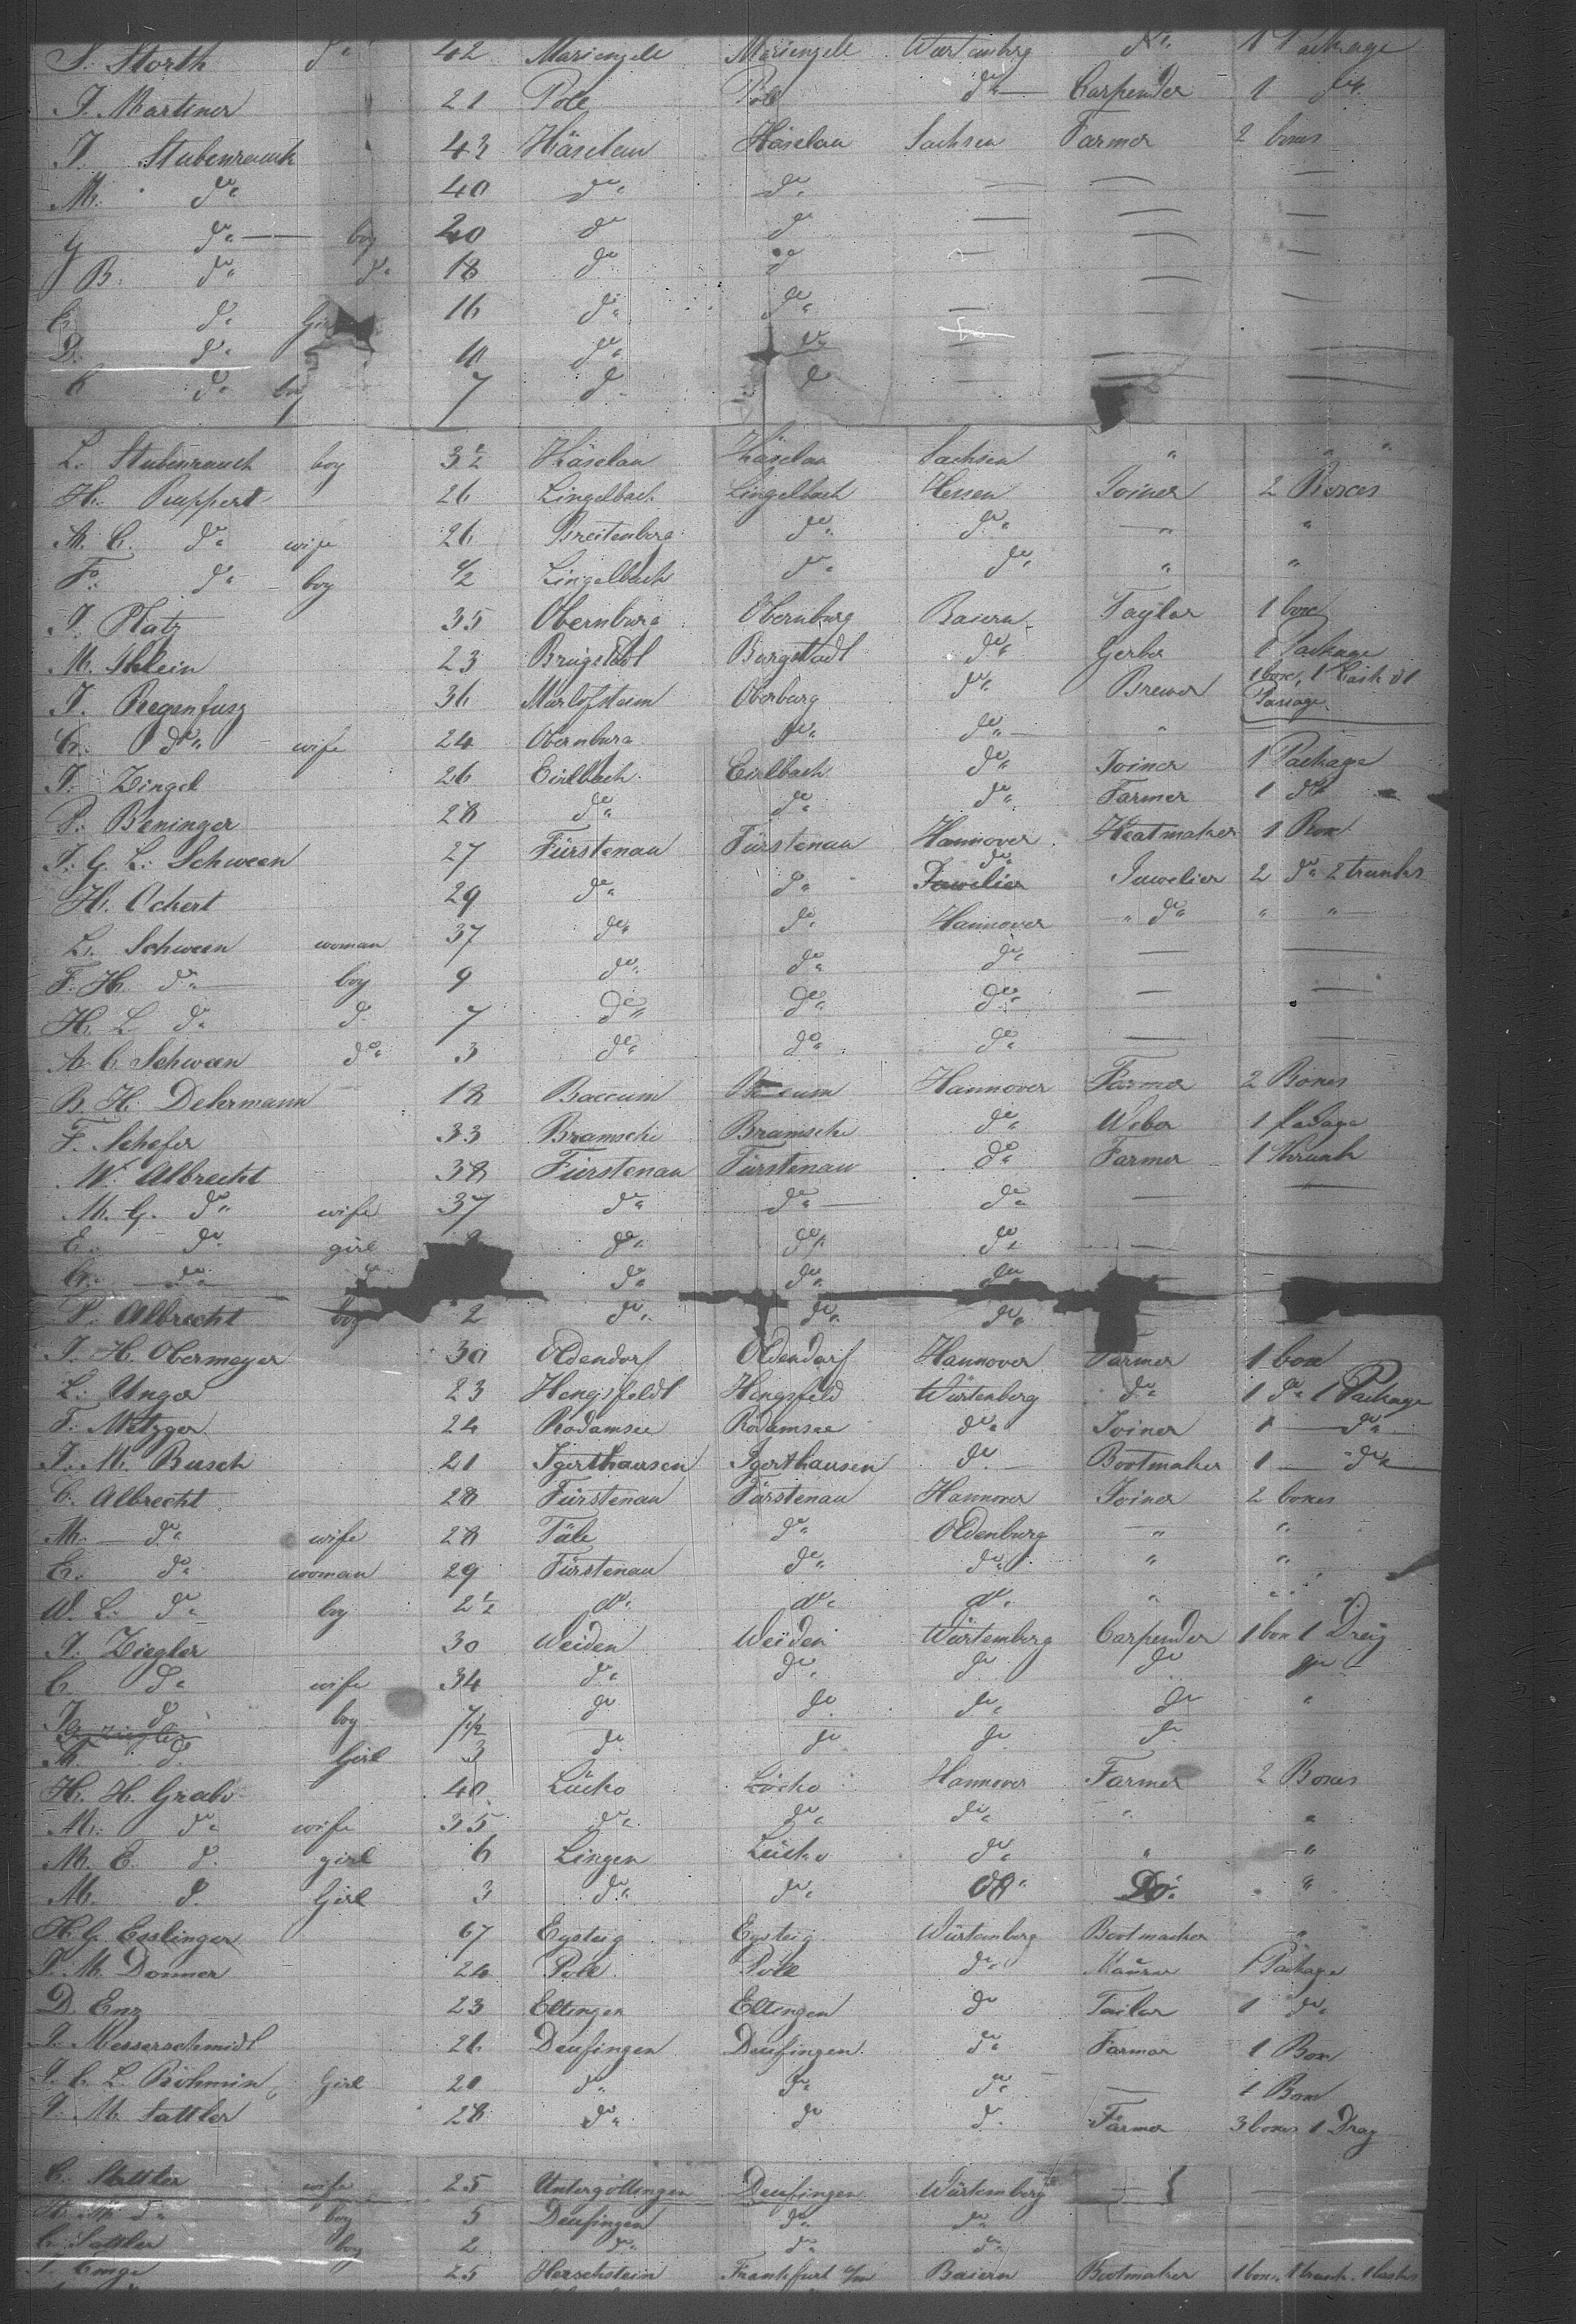 S. Storth do 42 Mariengele Mariengele Würtemberg do 1 Package
J. Martiner 21 Pole Pole do Carpender 1 do
J. Stubenrauch 43 Häselau Häselau Sachsen Farmer 2 boxes
M. do 40 do do — — —
G do — boy 20 do d — — —
B. do do 18 do d — — —
C. do Girl 16 do do — — —
D. do do — — —
C do boy 7 d d — — —
L. Stubenrauch boy 3 1/2 Häselau Häselau Sachsen " "
H. Ruppert 26 Lingelbach Lingelbach Hessen Joiner 2 Boxes
A. C. do wife 26 Breitenberg do do " "
F. do boy 1/2 Lingelbach do do " "
J. Platz 35 Obernburg Obernburg Baiern Taylor 1 box
M. Ihlein 23 Brugstadt Burgstadt do Gerber 1 Package
J. Regenfusz 36 Marlofsteim Oberburg do Brewer 1 box, 1 Cask & 1 Passage
C. do wife 24 Obernburg do do "
J. Zingel 26 Eirlbach Eirlbach do Joiner 1 Package
P. Beninger 28 do do do Farmer 1 do
J. G. L. Schween 27 Fürstenau Fürstenau Hannover Heatmaker 1 Box
H. Ockert 29 do do do Juwelier 2 do 2 trunks
L. Schween woman 37 do do Hannover " do " "
F. H. do boy 9 do do do — —
H. L do d 7 do do do — —
A C Schween do 3 do do do — —
B. H. Dehermann 18 Baccum Baccum Hannover Farmer 2 Boxes
F. Schefer 33 Bramsche Bramsche do Weber 1 Padage
W. Albrecht 38 Fürstenau Fürstenau do Farmer 1 Thrunk
M. G. do wife 37 do do do — —
E. do girl do do do —
C. do do do do
P. Albrecht boy 2 do do do
J. H. Obermeyer 30 Oldendorf Oldendorf Hannover Farmer 1 box
L. Unger 23 Hengsfeldt Hengsfeld Würtenberg do 1 do 1 Package
F. Metzger 24 Rodamsee Rodamsee do Joiner 1 — do
J. M. Busch 21 Igerthausen Igerthausen do Bootmaker 1 — do
C. Albrecht 28 Fürstenau Fürstenau Hannover Joiner 2 boxes
M. do wife 28 Täle do Oldenburg " "
E. do woman 29 Fürstenau do do " "
W. L. do boy 2 1/2 do do do " "
J. Ziegler 30 Weiden Weiden Würtemberg Carpender 1 box 1 Dreig
C. do wife 34 do do do do do
J. d boy 7 1/2 do do do do "
M. d. Girl 3 do do do do
H. H. Grabo 40 Lücko Lücko Hannover Farmer 2 Boxes
M. do wife 35 do do do " "
M. E. d. girl 6 Lingen Lücko do " "
M. d. Girl 3 do do do Do "
H. G. Esslinger 67 Eysteig Eysteig Würtemberg Bootmacher "
J. M. Donner 24 Pole Pole do Maurer 1 Package
D. Enz 23 Eltingen Eltingen do Tailor 1 do
J. Messerschmidt 26 Deufingen Deufingen do Farmer 1 Box
J. C. L. Böhmin Girl 20 do do do — 1 Box
J. M. Sattler 28 do do d. Farmer 3 boxes 1 Drag
C. Sattler wife 25 Untergöttingen Deufingen Würtemberg — —
do boy 5 Deufingen do do
C. Sattler boy 2 do do do
J. Emge 25 Herschstein Frankfurt a/m Baiern Bootmaker 1 box, 1 trunk